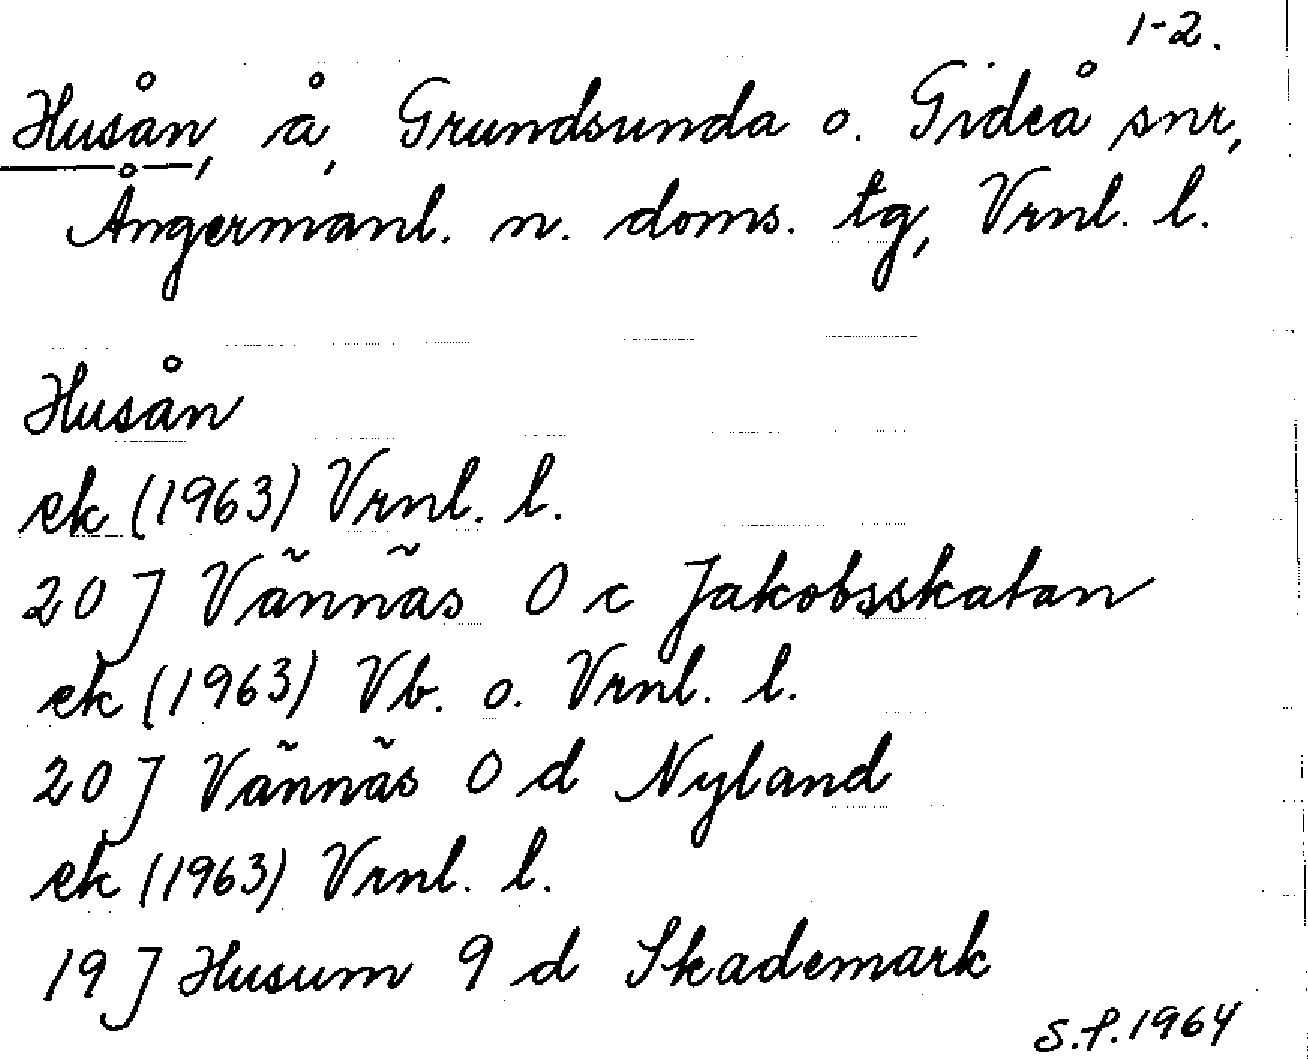 1-2.
Husån, å, Grundsunda o. Gideå snr,
Ångermanl. n. doms. tg, Vrnl. l.
Husån
ek (1963) Vrnl. l.
20 J Vännäs 0 c Jakobsskatan
ek (1963) Vb. o. Vrnl. l.
20 J Vännäs 0 d Nyland
ek (1963) Vrnl. l.
19 J Husum 9 d Skademark
S.P. 1964